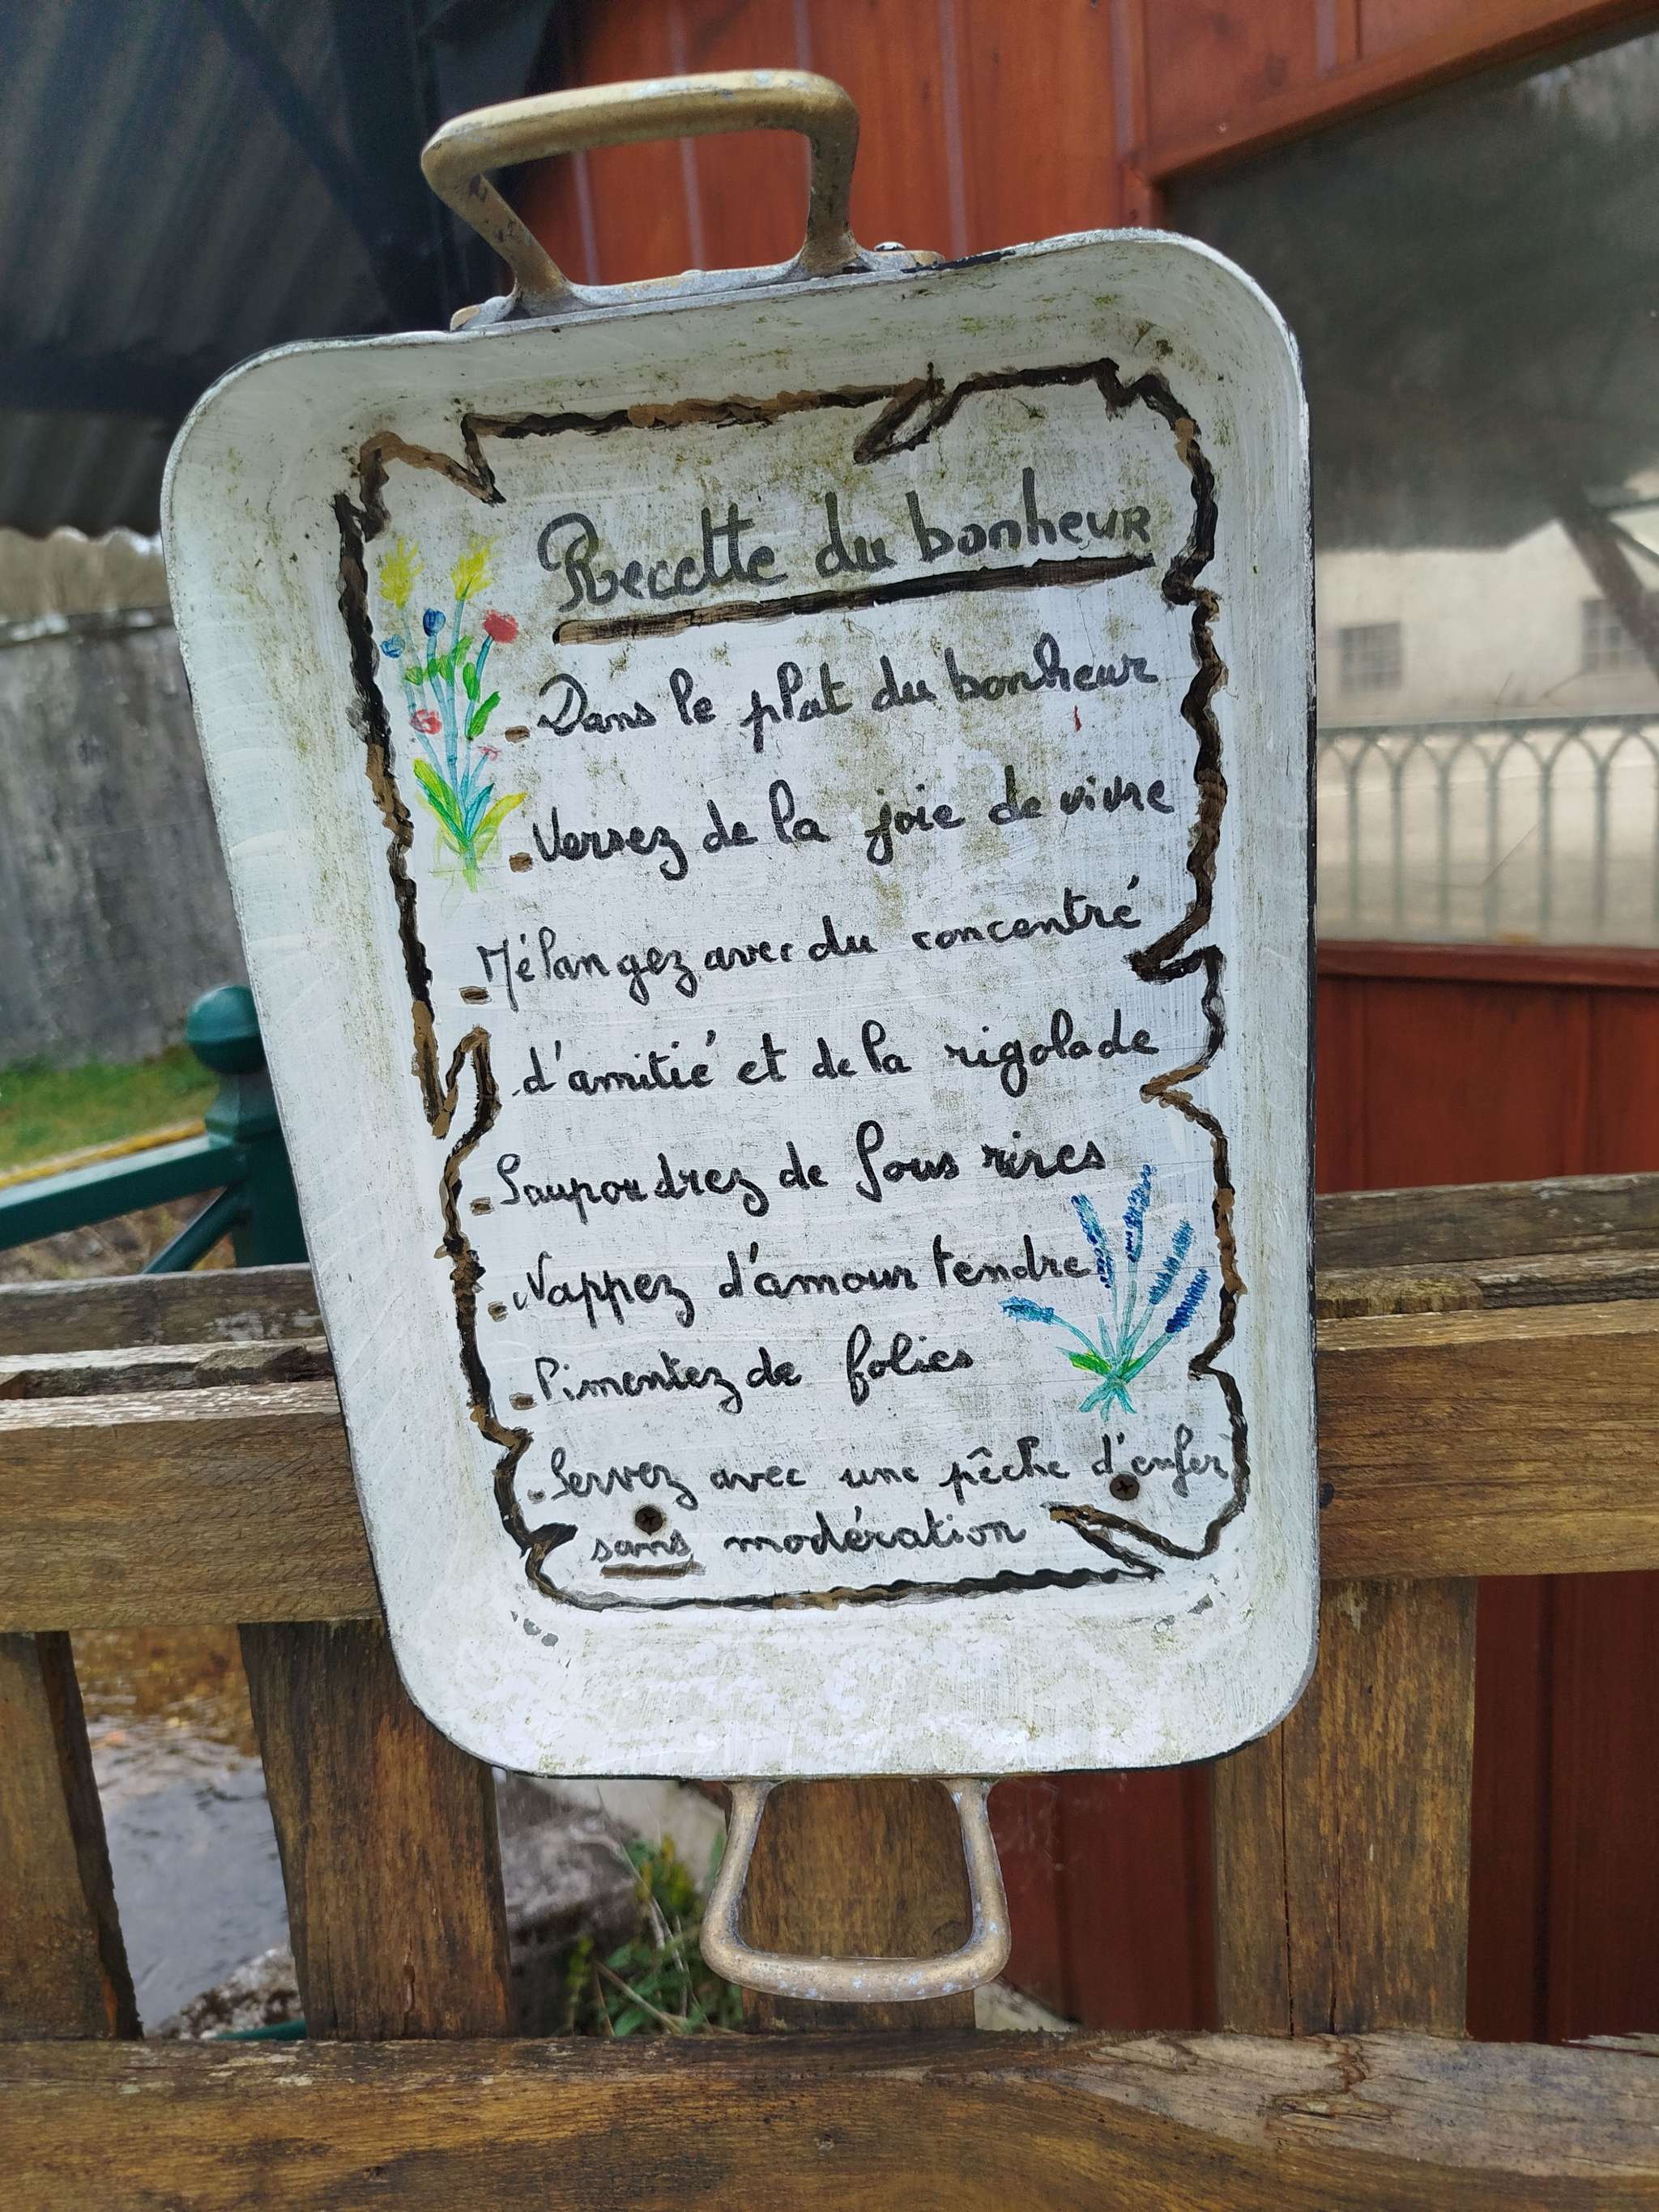 Recette du bonheur
- Dans le plat du bonheur
- Versez de la joie de vivre
- Mélangez avec du concentré
d'amitié et de la rigolade
- Saupoudrez de fous rires
- Nappez d'amour tendre
- Pimentez de folies
- Servez avec une pêche d'enfer
sans modération